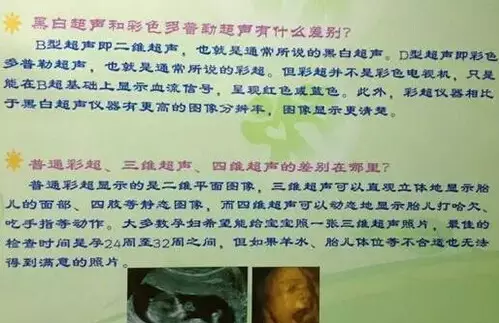 黑白超声和彩色多普勒超声有什么差别?
B型超声即二维超声,也就是通常所说的黑白超声。D型超声即彩色
多普勒超声,也就是通常所说的彩超。但彩超并不是彩色电视机,只是
能在B超基础上显示血流信号,呈现红色或蓝色。此外,彩超仪器相比
于黑白超声仪器有更高的图像分辨率,图像显示更清楚。
普通彩超、三维超声、四维超声的差别在哪里?
普通彩超显示的是二维平面图像,三维超声可以直观立体地显示胎
儿的面部、四肢等静态图像,而四维超声可以动态地显示胎儿打哈欠、
吃手指等动作。大多数孕妇希望能给宝宝照一张三维超声照片,最佳的
检查时间是孕24周至32周之间,但如果羊水、胎儿体位等不合适也无法
得到满意的照片。